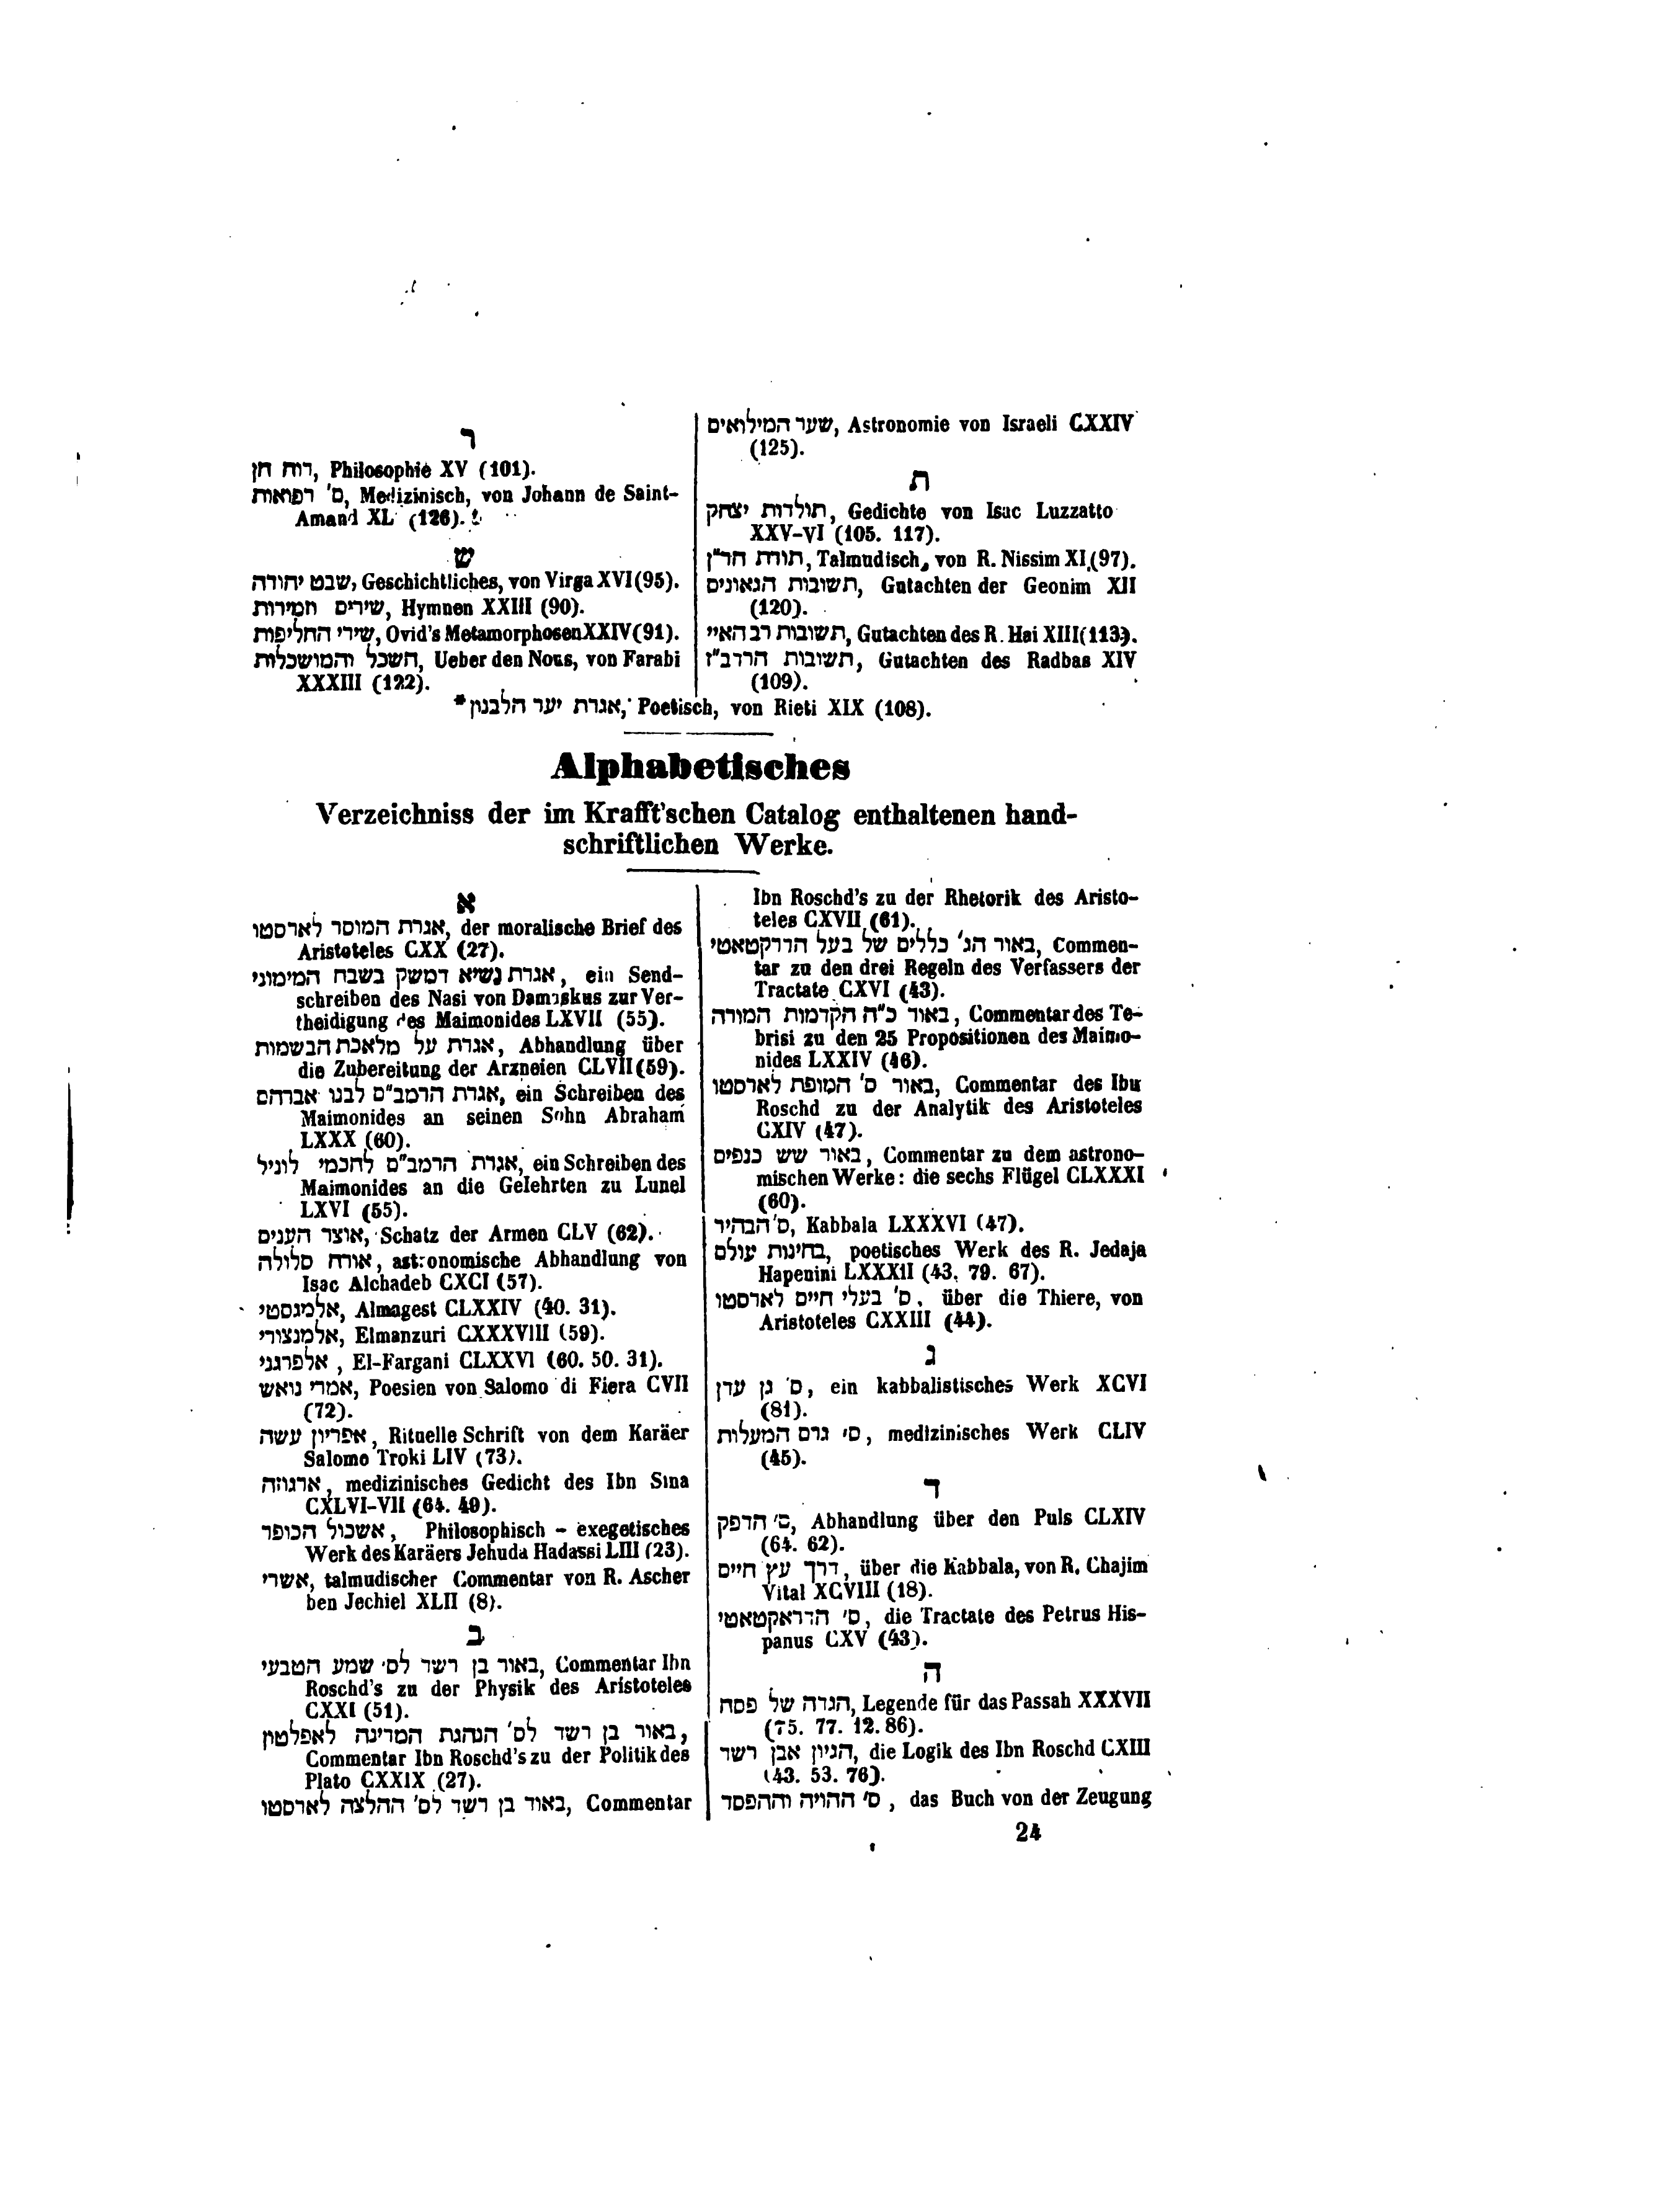 ר
רוח חן, Philosophie XV (101).
ס' רפואות, Medizinisch, von Johann de Saint-
Amand XL (126).
ש
שבט יהודה, Geschichtliches, von Virga XVI (95).
שירים וזמירות, Hymnen XXIII (90).
שירי החליפות, Ovid's Metamorphosen XXIV (91).
השכל והמושכלות, Ueber den Nous, von Farabi
XXXIII (122).
שער המילואים, Astronomie von Israeli CXXIV
(125).
ת
תולדות יצחק, Gedichte von Isac Luzzatto
XXV-VI (105. 117).
תורת הר"ן, Talmudisch, von R. Nissim XI (97).
תשובות הגאונים, Gutachten der Geonim XII
(120).
תשובות רב האיי, Gutachten des R. Hai XIII (113).
תשובות הרדב"ז, Gutachten des Radbas XIV
(109).
*אגרת יער הלבנון, Poetisch, von Rieti XIX (108).
Alphabetisches
Verzeichniss der im Krafft'schen Catalog enthaltenen hand-
schriftlichen Werke.
א
אגרת המוסר לארסטו, der moralische Brief des
Aristoteles CXX (27).
אגרת נשיא דמשק בשבח המימוני, ein Send-
schreiben des Nasi von Damaskus zur Ver-
theidigung des Maimonides LXVII (55).
אגרת על מלאכת הבשמות, Abhandlung über
die Zubereitung der Arzneien CLVII (59).
אגרת הרמב"ם לבנו אברהם, ein Schreiben des
Maimonides an seinen Sohn Abraham
LXXX (60).
אגרת הרמב"ם לחכמי לוניל, ein Schreiben des
Maimonides an die Gelehrten zu Lunel
LXVI (55).
אוצר הענים, Schatz der Armen CLV (62).
אורח סלולה, astronomische Abhandlung von
Isac Alchadeb CXCI (57).
אלמגסטי, Almagest CLXXIV (40. 31).
אלמנצורי, Elmanzuri CXXXVIII (59).
אלפרגני, El-Fargani CLXXVI (60. 50. 31).
אמרי נואש, Poesien von Salomo di Fiera CVII
(72).
אפריון עשה, Rituelle Schrift von dem Karäer
Salomo Troki LIV (73).
ארגוזה, medizinisches Gedicht des Ibn Sina
CXLVI-VII (64. 49).
אשכול הכופר, Philosophisch - exegetisches
Werk des Karäers Jehuda Hadassi LIII (23).
אשרי, talmudischer Commentar von R. Ascher
ben Jechiel XLII (8).
ב
באור בן רשד לס' שמע הטבעי, Commentar Ibn
Roschd's zu der Physik des Aristoteles
CXXI (51).
באור בן רשד לס' הנהגת המדינה לאפלטון,
Commentar Ibn Roschd's zu der Politik des
Plato CXXIX (27).
באור בן רשד לס' ההלצה לארסטו, Commentar
Ibn Roschd's zu der Rhetorik des Aristo-
teles CXVII (61).
באור הג' כללים של בעל הדרקטאטי, Commen-
tar zu den drei Regeln des Verfassers der
Tractate CXVI (43).
באור כ"ה הקדמות המורה, Commentar des Te-
brisi zu den 25 Propositionen des Maimo-
nides LXXIV (46).
באור ס' המופת לארסטו, Commentar des Ibn
Roschd zu der Analytik des Aristoteles
CXIV (47).
באור שש כנפים, Commentar zu dem astrono-
mischen Werke: die sechs Flügel CLXXXI
(60).
ס' הבהיר, Kabbala LXXXVI (47).
בחינות עולם, poetisches Werk des R. Jedaja
Hapenini LXXXII (43. 79. 67).
ס' בעלי חיים לארסטו, über die Thiere, von
Aristoteles CXXIII (44).
ג
ס' גן עדן, ein kabbalistisches Werk XCVI
(81).
ס' גרם המעלות, medizinisches Werk CLIV
(45).
ד
ס' הדפק, Abhandlung über den Puls CLXIV
(64. 62).
דרך עץ חיים, über die Kabbala, von R. Chajim
Vital XCVIII (18).
ס' הדראקטאטי, die Tractate des Petrus His-
panus CXV (43).
ה
הגדה של פסח, Legende für das Passah XXXVII
(75. 77. 12. 86).
הגיון אבן רשד, die Logik des Ibn Roschd CXIII
(43. 53. 76).
ס' ההויה וההפסד, das Buch von der Zeugung
24